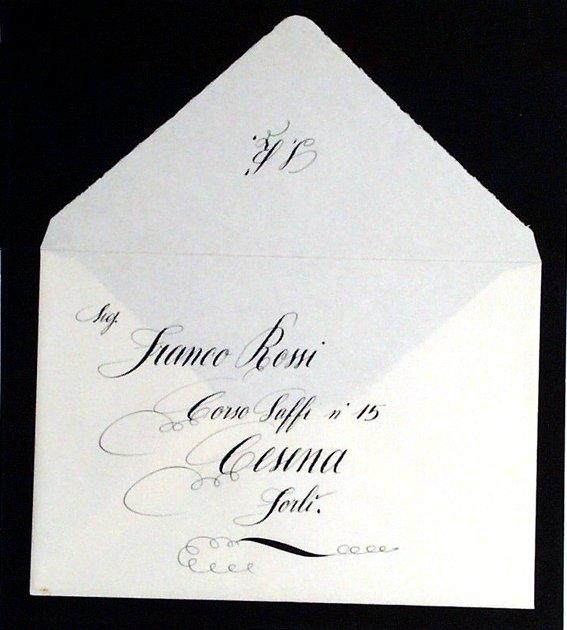 Sig.
Franco Rossi
Corso Saffi n° 15
Cesena
Forlì.